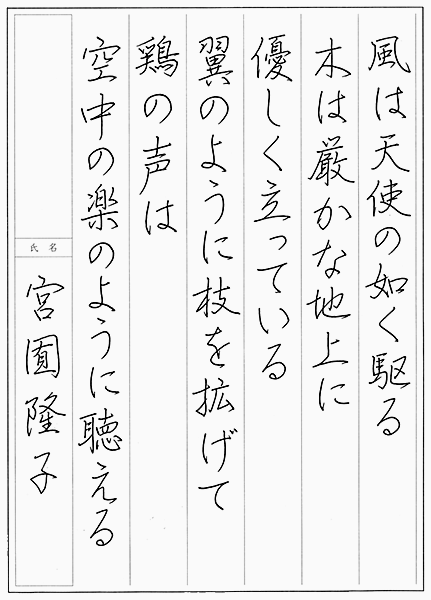 風は天使の如く駆る
木は厳かな地上に
優しく立っている
翼のように枝を拡げて
鶏の声は
空中の楽のように聴える
氏名
宮園隆子